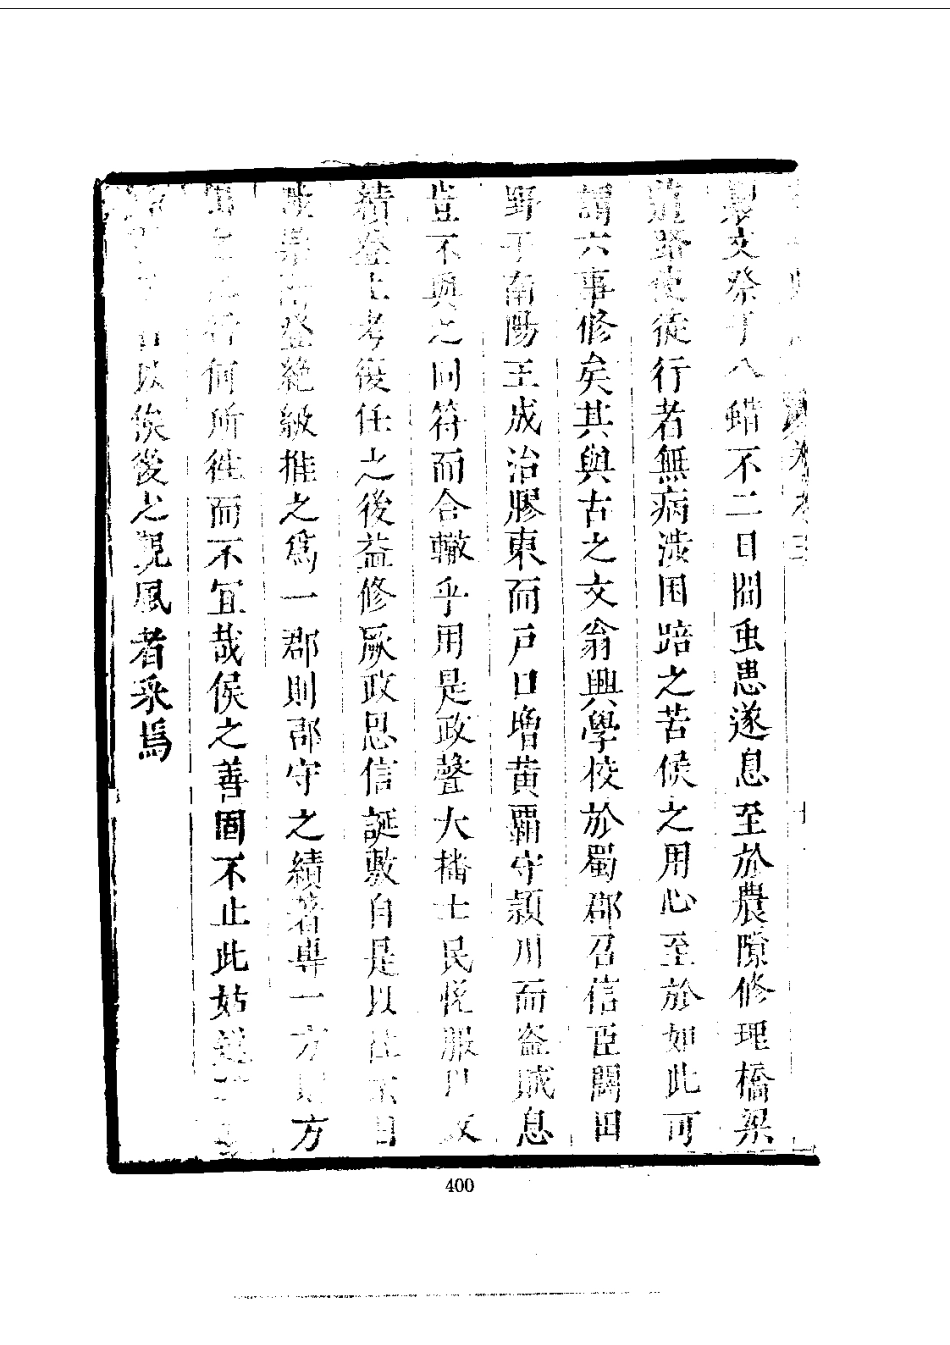 文祭于八蜡不二日間虫患遂息至於農隙修理橋梁
道路使從行者無病涉困踣之苦候之用心至於如此可
謂六事修矣其與古之文翁興學校於蜀郡召信臣闢田
野于南陽王成治膠東而戸口增黄覇守頴川而盗賊息
豈不與之同符而合轍乎用是政聲大播士民悦服以政
績登上考復任之後益修厥政思信誕敷自是以往
登絶級推之爲一郡則郡守之績著専一方則方
行何所徃而不宜哉侯之善固不止此姑
以俟後之観風者采焉
400